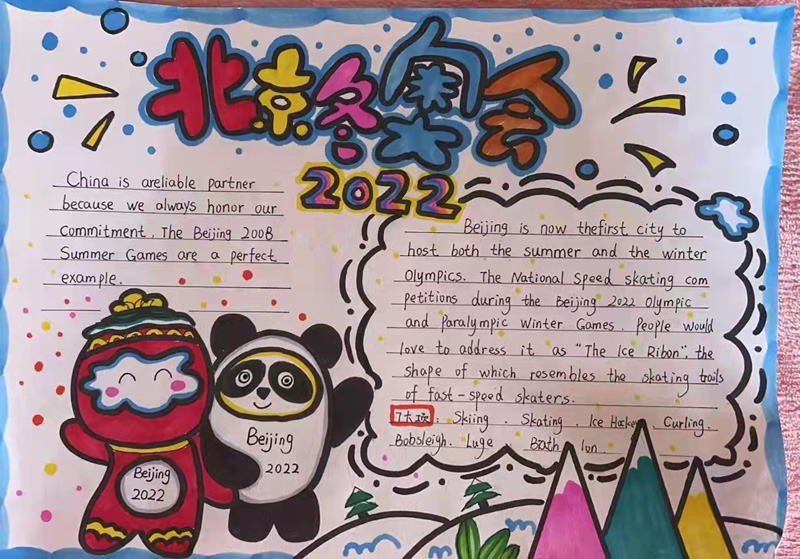 北京冬奥会
2022
China is areliable partner
because we always honor our
commitment. The Beijing 2008
Summer Games are a perfect
example.
Beijing is now thefirst city to
host both the summer and the winter
Olympics. The National Speed skating com
petitions during the Beijing 2022 Olympic
and Paralympic Winter Games. People would
love to address it as "The Ice Ribon", the
shape of which resembles the skating trails
of fast-speed skaters.
7大项: Skiing. Skating. Ice Hockey. Curling.
Bobsleigh. Luge Biath lon.
Beijing
2022
Beijing
2022